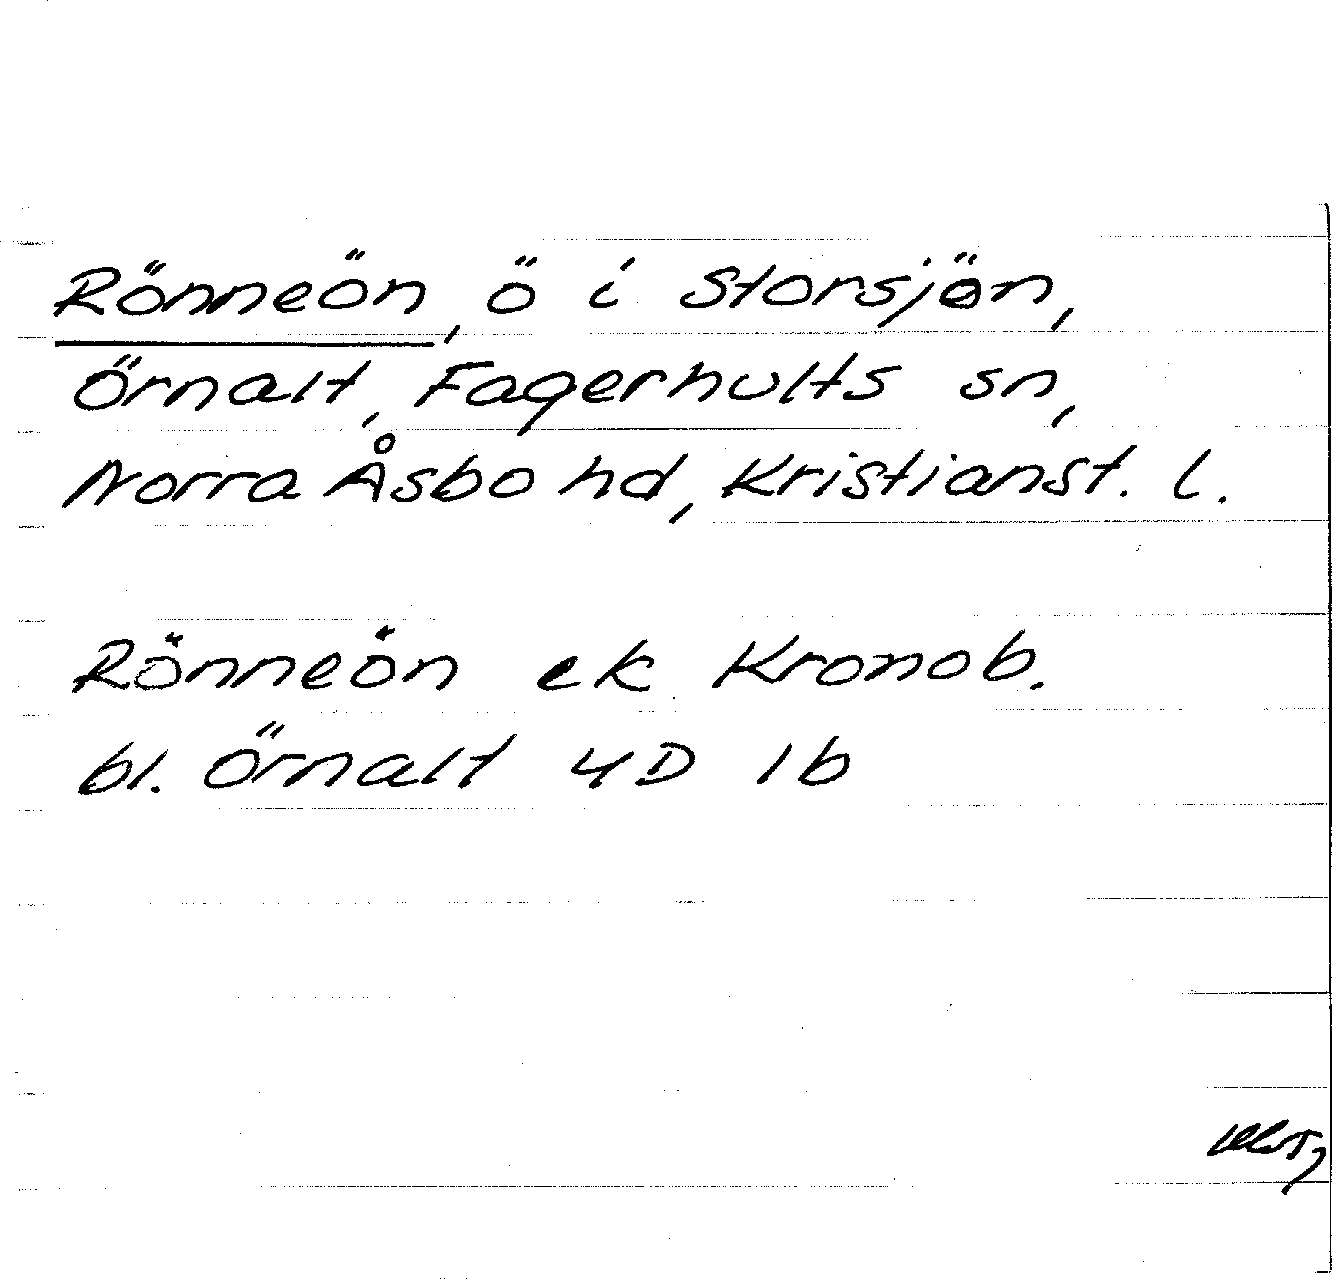 Rönneön, ö i Storsjön,
Örnalt, Fagerhults sn,
Norra Åsbo hd, Kristianst. l.
Rönneön ek Kronob.
bl. Örnalt 4D 1b